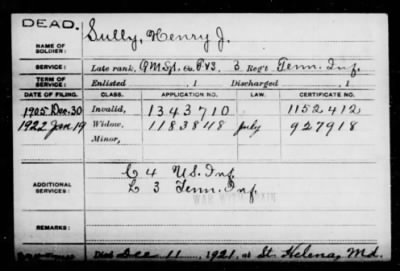 DEAD.
NAME OF SOLDIER: Sully, Henry J.
SERVICE: Late rank, Q M Sgt, Co. 3 Reg't Tenn. Inf.
TERM OF SERVICE: Enlisted , 1 Discharged , 1
DATE OF FILING. CLASS. APPLICATION NO. LAW. CERTIFICATE NO.
1905 Dec. 30 Invalid, 1343710 1152412
1922 Jan 19 Widow, 1183848 July 927918
Minor,
ADDITIONAL SERVICES: C 4 U.S. Inf.
L 3 Tenn. Inf.
WAR WITH SPAIN
REMARKS:
Died Dec 11, 1921, at St. Helena, Md.